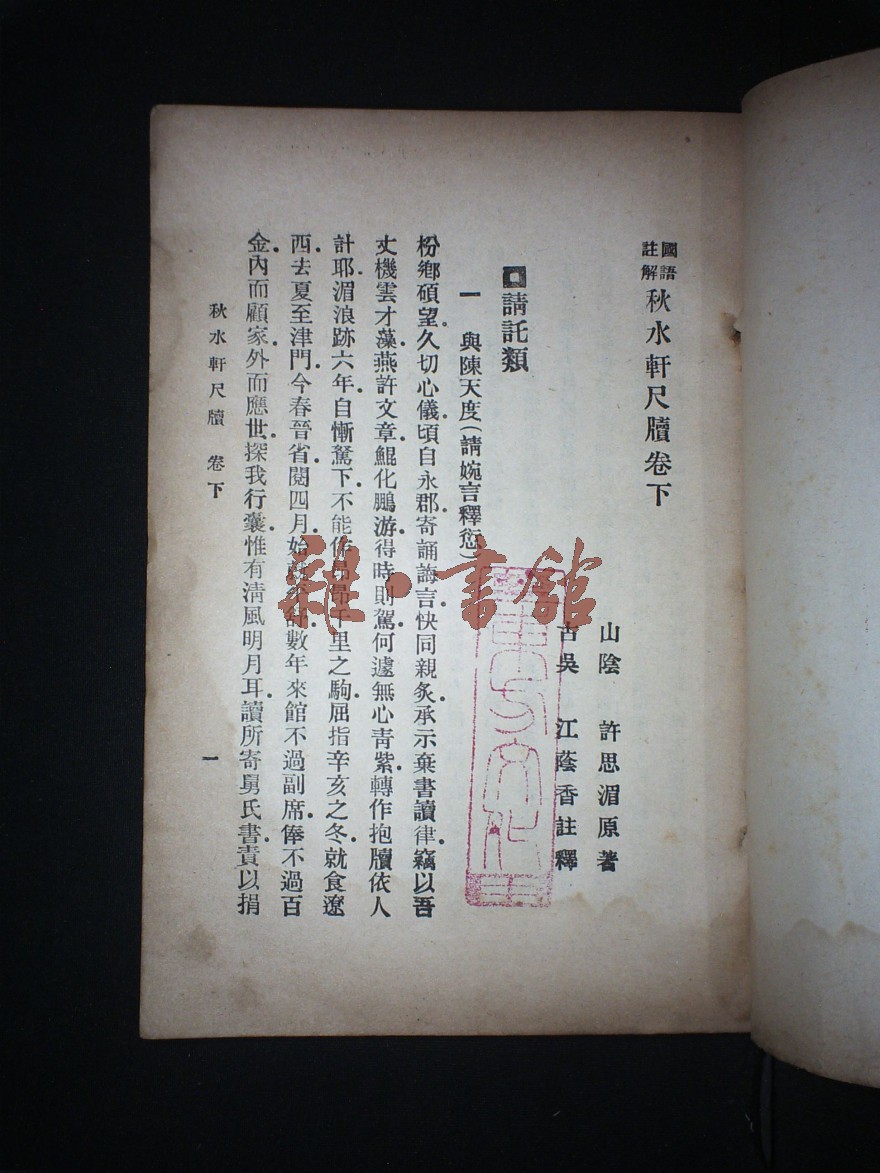 國語註解 秋水軒尺牘卷下
山陰 許思湄原著
古吳 江蔭香註釋
請託類
一 與陳天度(請婉言釋愆)
枌鄉碩望。久切心儀。頃自永郡。寄誦誨言。快同親炙。承示棄書讀律。竊以吾
丈機雲才藻。燕許文章。鯤化鵬游。得時則駕。何遽無心靑紫。轉作抱牘依人
計耶。湄浪跡六年。自慚駑下。不能千里之駒。屈指辛亥之冬。就食遼
西。去夏至津門。今春晉省。閱四月。始數年來館不過副席。俸不過百
金。內而顧家。外而應世。探我行囊。惟有淸風明月耳。讀所寄舅氏書。責以捐
秋水軒尺牘 卷下
一
雜·書館